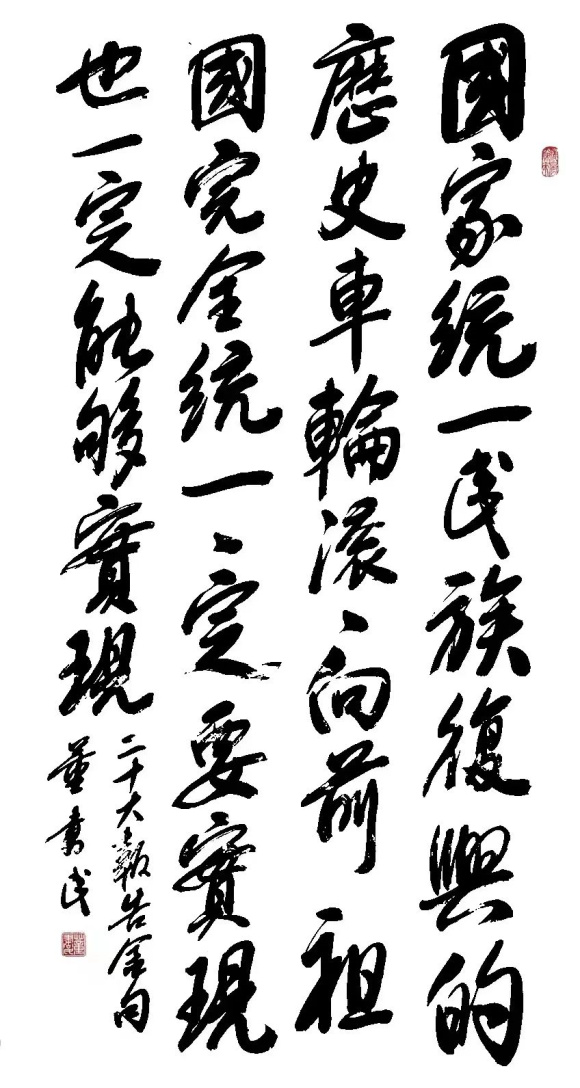 國家統一民族復興的
歷史車輪滾〻向前祖
國完全統一〻定要實現
也一定能够實現
二十大報告金句
董書民